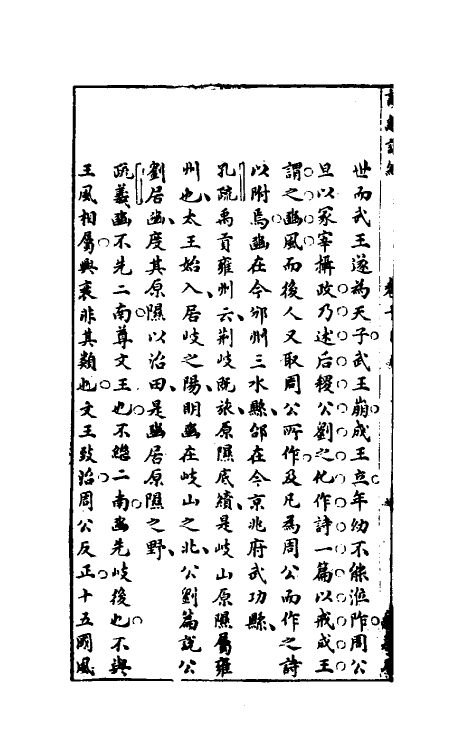 世而武王遂為天子武王崩成王立年幼不能涖阼周公
旦以冢宰攝政乃述后稷公劉之化作詩一篇以戒成王
謂之豳風而後人又取周公所作及凡為周公而作之詩
以附焉豳在今邠州三水縣邰在今京兆府武功縣
孔疏禹貢雍州云荊岐既旅原隰底績是岐山原隰屬雍
州也太王始入居岐之陽明豳在岐山之北公劉篇說公
劉居豳度其原隰以治田是豳居原隰之野
疏義豳不先二南尊文王也不繼二南豳先岐後也不與
王風相屬興衰非其類也文王致治周公反正十五國風